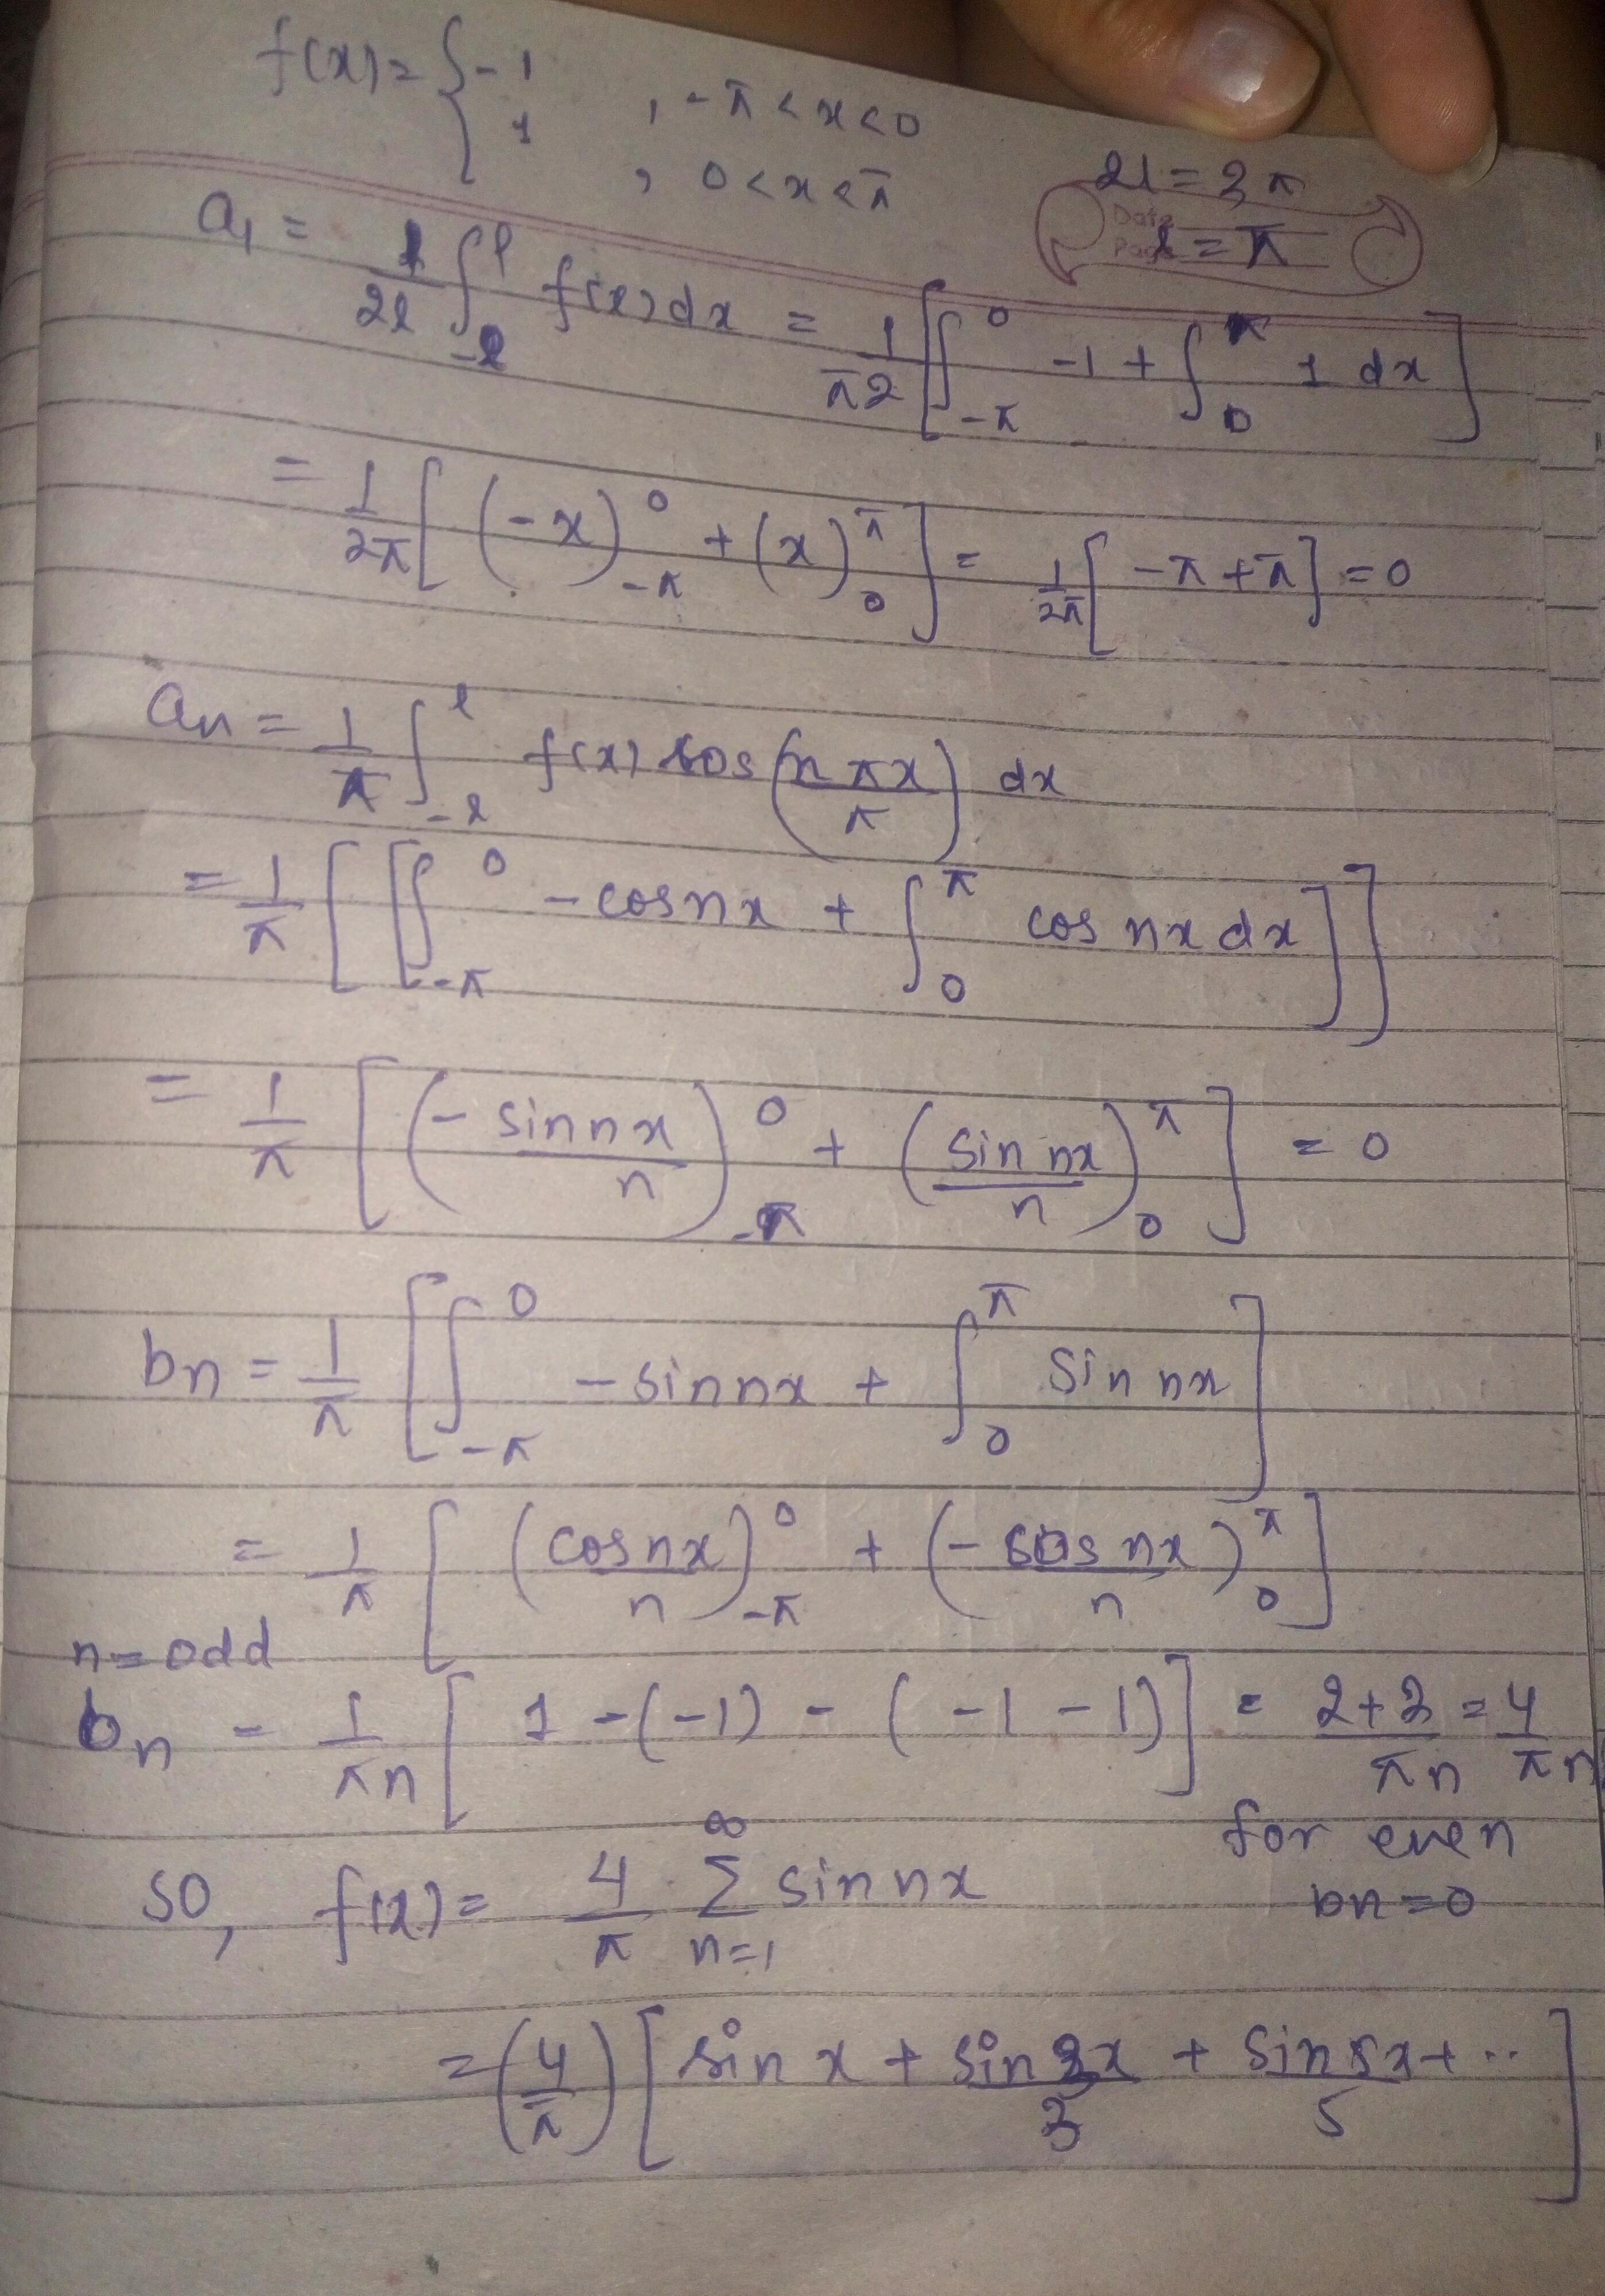 f(x) = { -1 , -π < x < 0
1 , 0 < x < π
2l = 2π
Date
Page l = π
a₁ = 1/2l ∫₋ₗˡ f(x) dx = 1/π2 [ ∫₋π⁰ -1 + ∫₀^π 1 dx ]
= 1/2π [ (-x)₋π⁰ + (x)₀^π ] = 1/2π [ -π + π ] = 0
aₙ = 1/π ∫₋ₗˡ f(x) cos (nπx/π) dx
= 1/π [ [ ∫₋π⁰ -cos nx + ∫₀^π cos nx dx ] ]
= 1/π [ (- sin nx / n)₋π⁰ + (sin nx / n)₀^π ] = 0
bn = 1/π [ ∫₋π⁰ - sin nx + ∫₀^π sin nx ]
= 1/π [ (cos nx / n)₋π⁰ + (- cos nx / n)₀^π ]
n = odd
bₙ = 1/πn [ 1 - (-1) - ( -1 - 1) ] = 2+2/πn = 4/πn
for even
bn = 0
SO, f(x) = 4/π ∑ₙ₌₁^∞ sin nx
= (4/π) [ sin x + sin 3x/3 + sin 5x/5 + .. ]